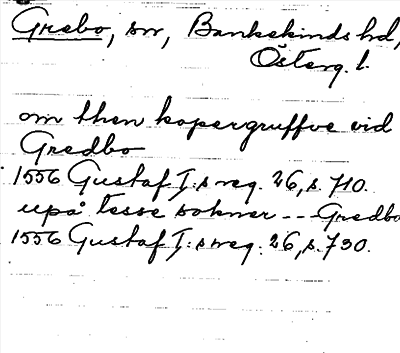 Grebo, sn, Bankekinds hd,
Österg. l.
om then kopergruffve vid
Gredbo
1556 Gustaf I:s reg. 26, s. 710.
upå tesse sokner -- Gredbo
1556 Gustaf I:s reg. 26, s. 730.